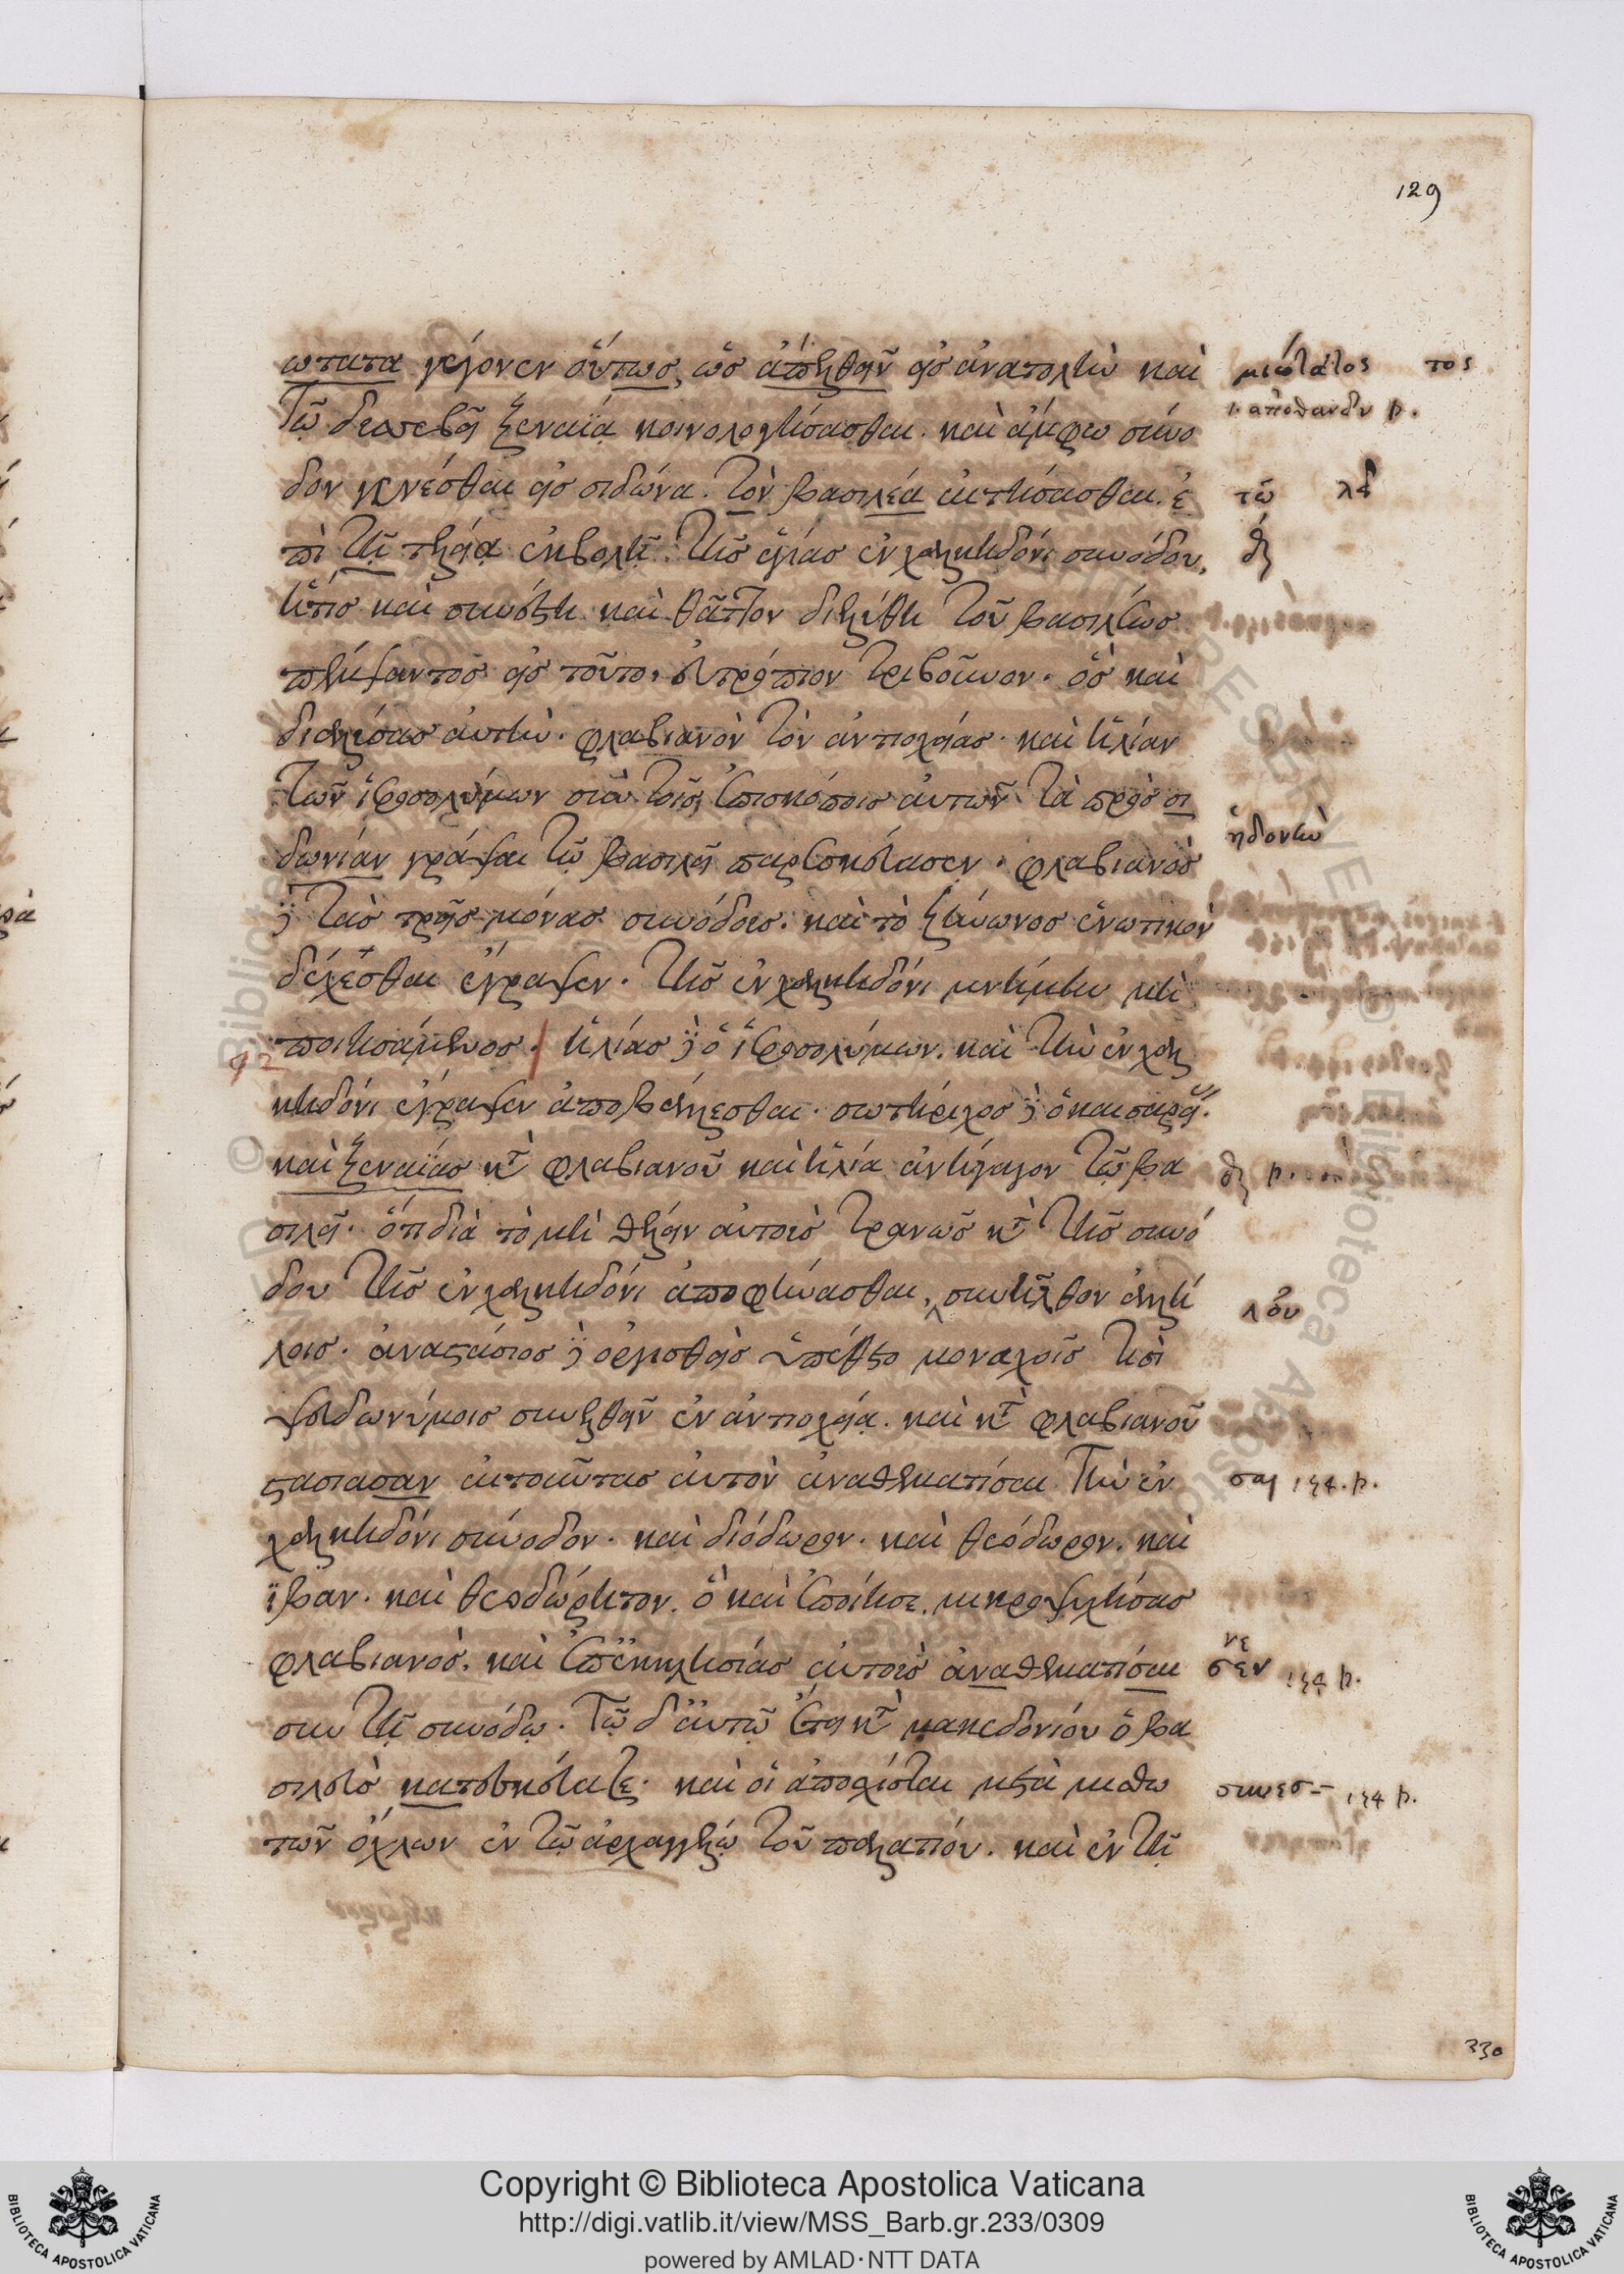 129
ωτατα γέγονεν οὕτως, ὡς ἀπελθεῖν εἰς ἀνατολὴν καὶ
τῷ δυσσεβεῖ ξεναΐᾳ κοινολογήσασθαι. καὶ ἄμφω σύνο
δον γενέσθαι εἰς σιδῶνα. τὸν βασιλέα αἰτήσασθαι. ἐ
πὶ τῇ τελείᾳ ἐκβολῇ τῆς ἁγίας ἐν χαλκηδόνι συνόδου,
ἥτις καὶ συνέστη καὶ θᾶττον διελύθη τοῦ βασιλέως
πέμψαντος εἰς τοῦτο, εὐτρόπιον τριβοῦνον. ὃς καὶ
διαλύσας αὐτὴν. φλαβιανὸν τὸν ἀντιοχείας. καὶ ἠλίαν
τῶν ἱεροσολύμων σὺν τοῖς ἐπισκόποις αὐτῶν τὰ πρὸς σι
δωνίαν γράψαι τῷ βασιλεῖ παρεσκεύασεν. φλαβιανὸς
δὲ τὰς τρεῖς μόνας συνόδους. καὶ τὸ ζήνωνος ἑνωτικὸν
δέχεσθαι ἔγραψεν. τῆς ἐν χαλκηδόνι μνήμην μὴ
ποιησάμενος. ἠλίας δὲ ὁ ἱεροσολύμων. καὶ τὴν ἐν χαλ
92
κηδόνι ἔγραψεν ἀποβάλλεσθαι. σωτήριχος δὲ ὁ καισαρεί.
καὶ ξεναΐας κτ̀ φλαβιανοῦ καὶ ἠλία ἀνήγαγον τῷ βα
σιλεῖ. ὅτι διὰ τὸ μὴ θέλειν αὐτοὺς τρανῶς κτ̀ τῆς συνό
δου τῆς ἐν χαλκηδόνι ἀποφήνασθαι, συνῆλθον ἀλλή
λοις. ἀναστάσιος δὲ ὀργισθεὶς ὑπέθετο μοναχοῖς τισὶ
ψευδωνύμοις συνελθεῖν ἐν ἀντιοχείᾳ. καὶ κτ̀ φλαβιανοῦ
στασιασαν αἰτοῦντας αὐτὸν ἀναθεματίσαι τὴν ἐν
χαλκηδόνι σύνοδον. καὶ διόδωρον. καὶ θεόδωρον. καὶ
ἴβαν. καὶ θεοδώρητον. ὃ καὶ ἐποίησε. μικροψυχήσας
φλαβιανός. καὶ ἐπ' ἐκκλησίας αὐτοὺς ἀναθεματίσαι
συν τῇ συνόδῳ. τῷ δ' αὐτῷ ἔτει κτ̀ μακεδονίου ὁ βα
σιλεὺς κατεσκεύαζε. καὶ οἱ ἀποσχίσται μετὰ μισθω
τῶν ὄχλων ἐν τῷ ἀρχαγγέλῳ τοῦ παλατίου. καὶ ἐν τῇ
μιώτατος τος
ι. ἀποθανεῖν p.
τῶ λέ
ηδοντὼ
λου
σαι p.
νε
σεν p.
συνεσ- p.
330
Copyright © Biblioteca Apostolica Vaticana
http://digi.vatlib.it/view/MSS_Barb.gr.233/0309
powered by AMLAD·NTT DATA
BIBLIOTECA APOSTOLICA VATICANA
BIBLIOTECA APOSTOLICA VATICANA